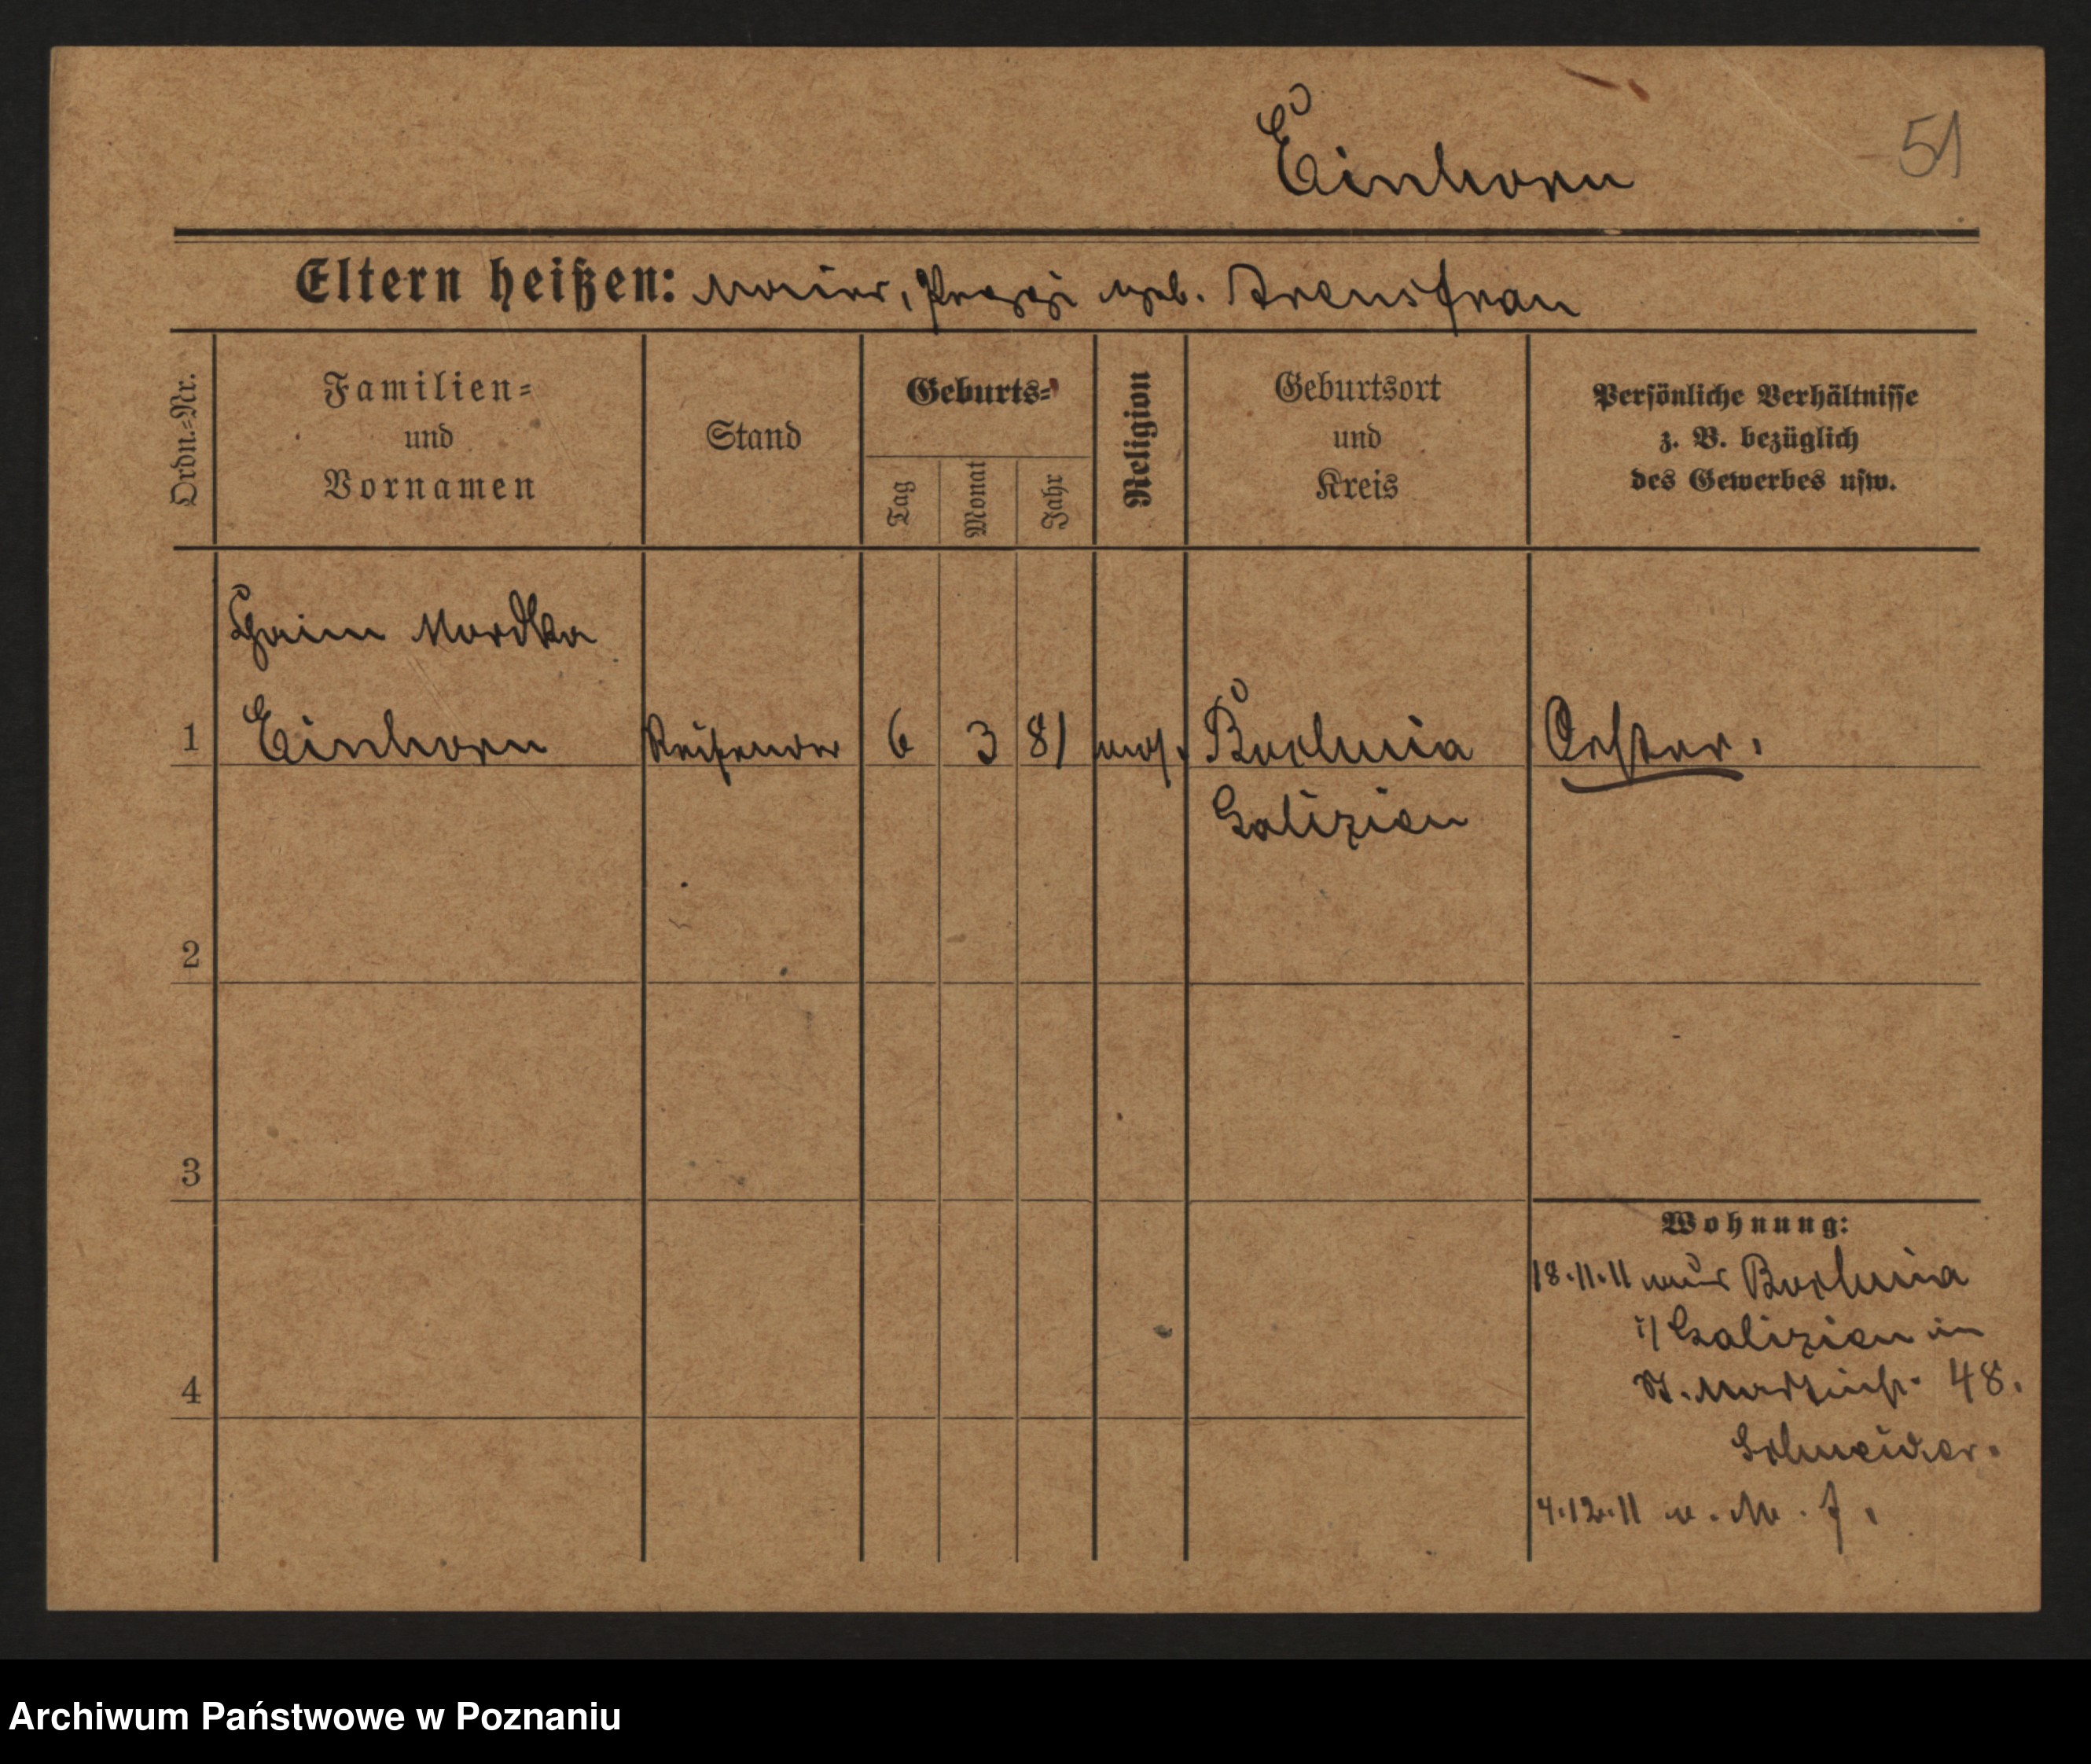 Einhorn
51
Eltern heißen: Meier, geb.
Ordn.-Nr.
Familien=
und
Vornamen
Stand
Geburts=
Tag
Monat
Jahr
Religion
Geburtsort
und
Kreis
Persönliche Verhältnisse
z. B. bezüglich
des Gewerbes usw.
Chaim Mordka
1 Einhorn Reisender 6 3 81 mos. Bochnia Oester.
Galizien
2
3
Wohnung:
18.11.11 aus Bochnia
i/ Galizien in
St. Martinstr. 48.
4
Schneider.
4.12.11 n.
Archiwum Państwowe w Poznaniu